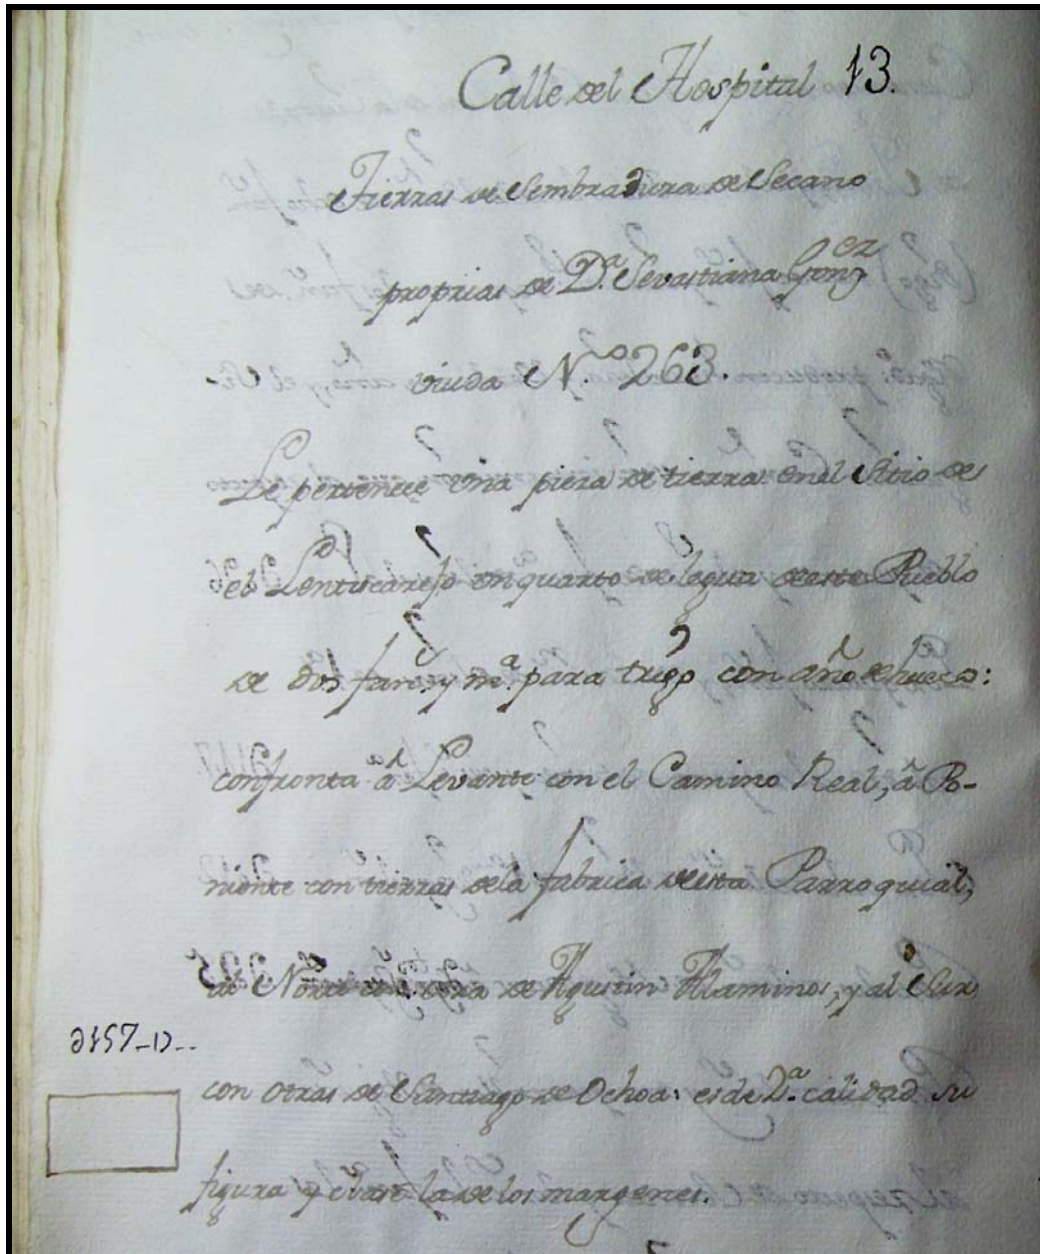 Calle del Hospital 13.
Tierras de Sembradura de Secano
proprias de D.ª Sevastiana Gonz ez
viuda N.º 263.
Le pertenece vna pieza de tierra en el Sitio de
el Lentiscarejo vn quarto de legua deste Pueblo
de dos fan.s y m.ª para trigo con año de hueco:
confronta â Levante con el Camino Real, â Po-
niente con tierras dela fabrica de esta Parroquial,
al Norte con de Agustin Alaminos, y al Sur
con otras de Santiago de Ochoa: es de 2.ª calidad su
figura y la de los margenes.